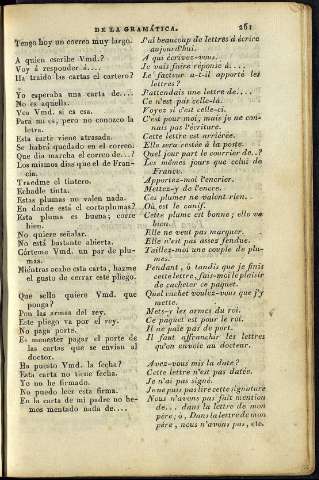 DE LA GRAMÁTICA. 261
Tengo hoy un correo muy largo.
J'ai beaucoup de lettres à écrire
aujourd'hui.
A quien escribe Vmd.?
A qui écrivez-vous.
Voy á responder á....
Je vais faire réponse à....
Ha traido las cartas el cartero?
Le facteur a-t-il apporté les
lettres?
Yo esperaba una carta de....
J'attendais une lettre de....
No es aquella.
Ce n'est pas celle-là.
Vea Vmd. si es esa.
Voyez si c'est celle-ci.
Para mí es, pero no conozco la
letra.
C'est pour moi; mais je ne con-
nais pas l'écriture.
Esta carte viene atrasada.
Cette lettre est arriérée.
Se habrá quedado en el correo.
Elle sera restée à la poste.
Que dia marcha el correo de...?
Quel jour part le courrier de..?
Los mismos dias que el de Fran-
cia.
Les mêmes jours que celui de
France.
Traedme el tintero.
Apportez-moi l'encrier.
Echadle tinta.
Mettez-y de l'encre.
Estas plumas no valen nada.
Ces plumes ne valent rien.
En donde está el cortaplumas?
Où est le canif.
Esta pluma es buena; corre
bien.
Cette plume est bonne; elle va
bien.
No quiere señalar.
Elle ne veut pas marquer.
No está bastante abierta.
Elle n'est pas assez fendue.
Córteme Vmd. un par de plu-
mas.
Taillez-moi une couple de plu-
mes.
Miéntras acabo esta carta, hazme
el gusto de cerrar este pliego.
Pendant, ó tandis que je finis
cette lettre, fais-moi le plaisir
de cacheter ce paquet.
Que sello quiere Vmd. que
ponga?
Quel cachet voulez-vous que j'y
mette.
Pon las armas del rey.
Mets-y les armes du roi.
Este pliego va por el rey.
Ce paquet est pour le roi.
No paga porte.
Il ne paie pas de port.
Es menester pagar el porte de
las cartas que se envian al
doctor.
Il faut affranchir les lettres
qu'on envoie au docteur.
Ha puesto Vmd. la fecha?
Avez-vous mis la date?
Esta carta no tiene fecha.
Cette lettre n'est pas datée.
Yo no he firmado.
Je n'ai pas signé.
No puedo leer esta firma.
Je ne puis pas lire cette signature
En la carta de mi padre no he-
mos mentado nada de....
Nous n'avons pas fait mention
de... dans la lettre de mon
père; ó, Dans la lettre de mon
père, nous n'avons pas, etc.